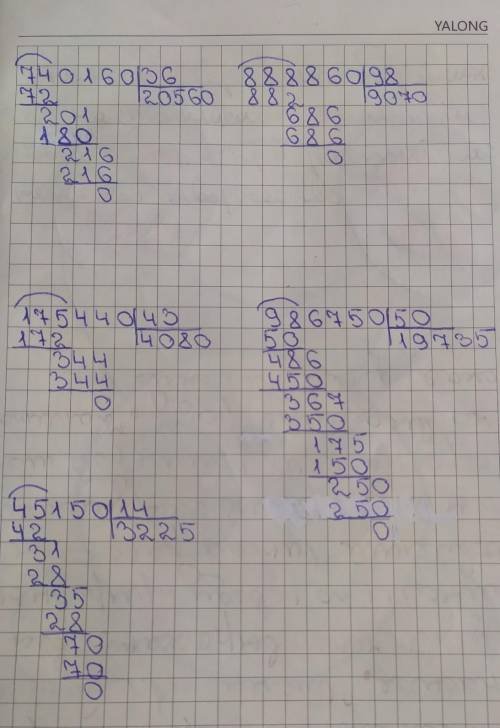 YALONG
740160 36
72 20560
201
180
216
216
0
888860 98
882 9070
686
686
0
175440 43
172 4080
344
344
0
986750 50
50 19735
486
450
367
350
175
150
250
250
0
45150 14
42 3225
31
28
35
28
70
70
0